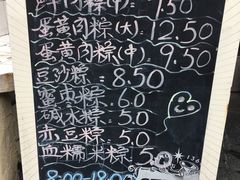 肉粽(中) 7.50
蛋黄肉粽(大) 12.50
蛋黄肉粽(中) 9.50
豆沙粽 8.50
蜜枣粽 6.0
碱水粽 5.0
赤豆粽 5.0
血糯米粽 5.0
8:00-18:00